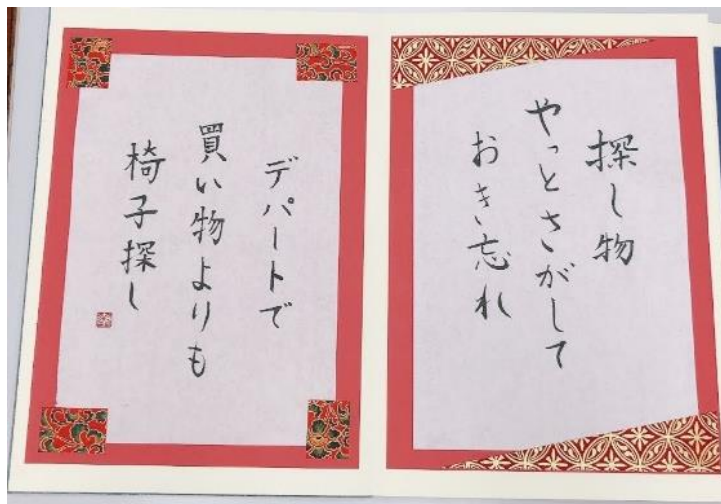 探し物
やっとさがして
おき忘れ
デパートで
買い物よりも
椅子探し